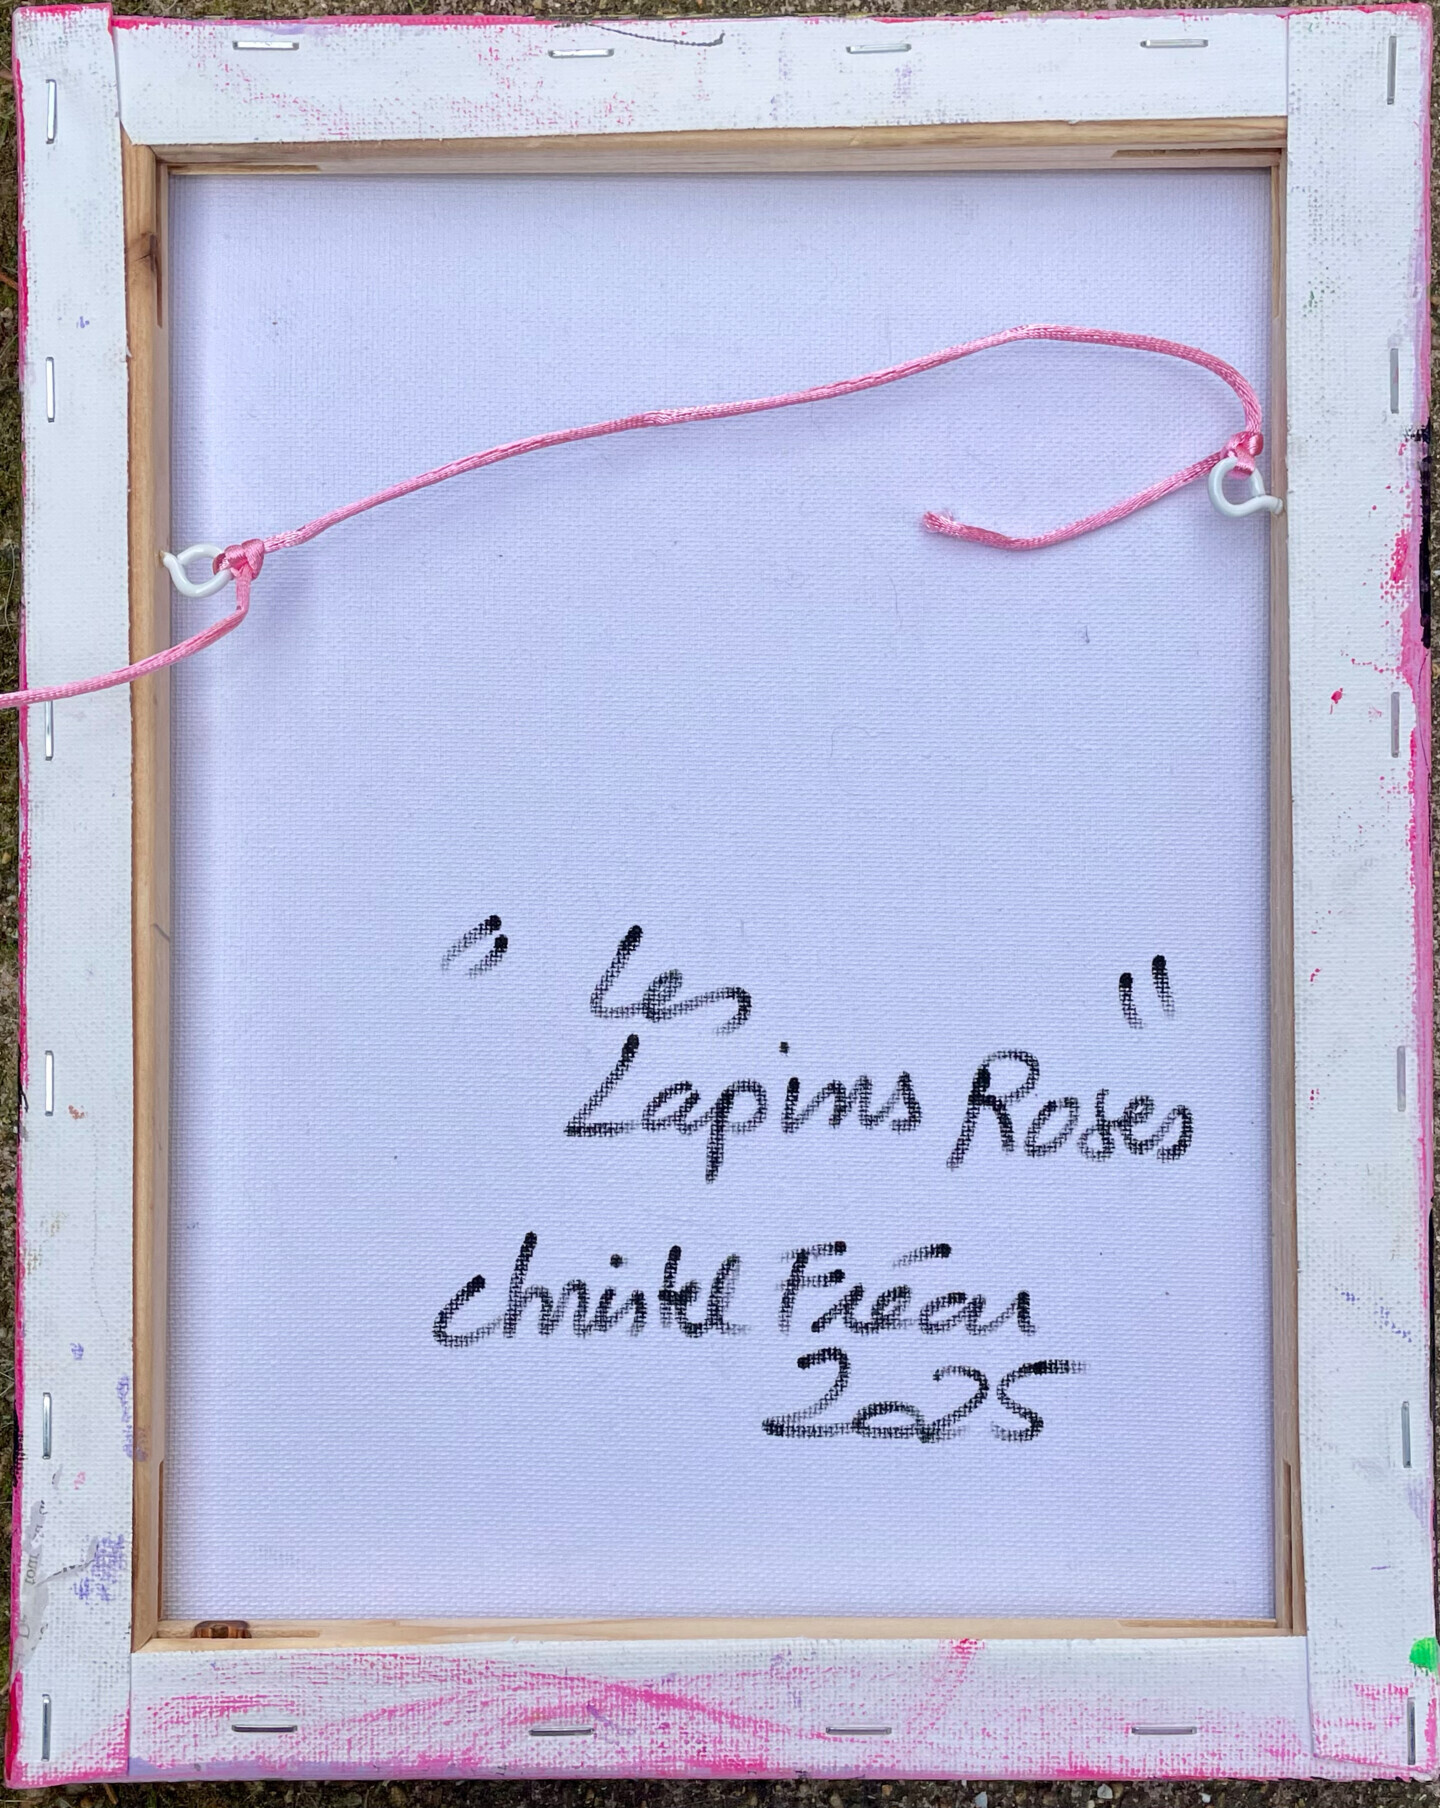 " Les "
Lapins Roses
Christel Fréar
2025